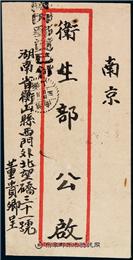 南京
衛生部 公啟
湖南省衡山縣西門外北望橋三十一號
董貴鄉呈